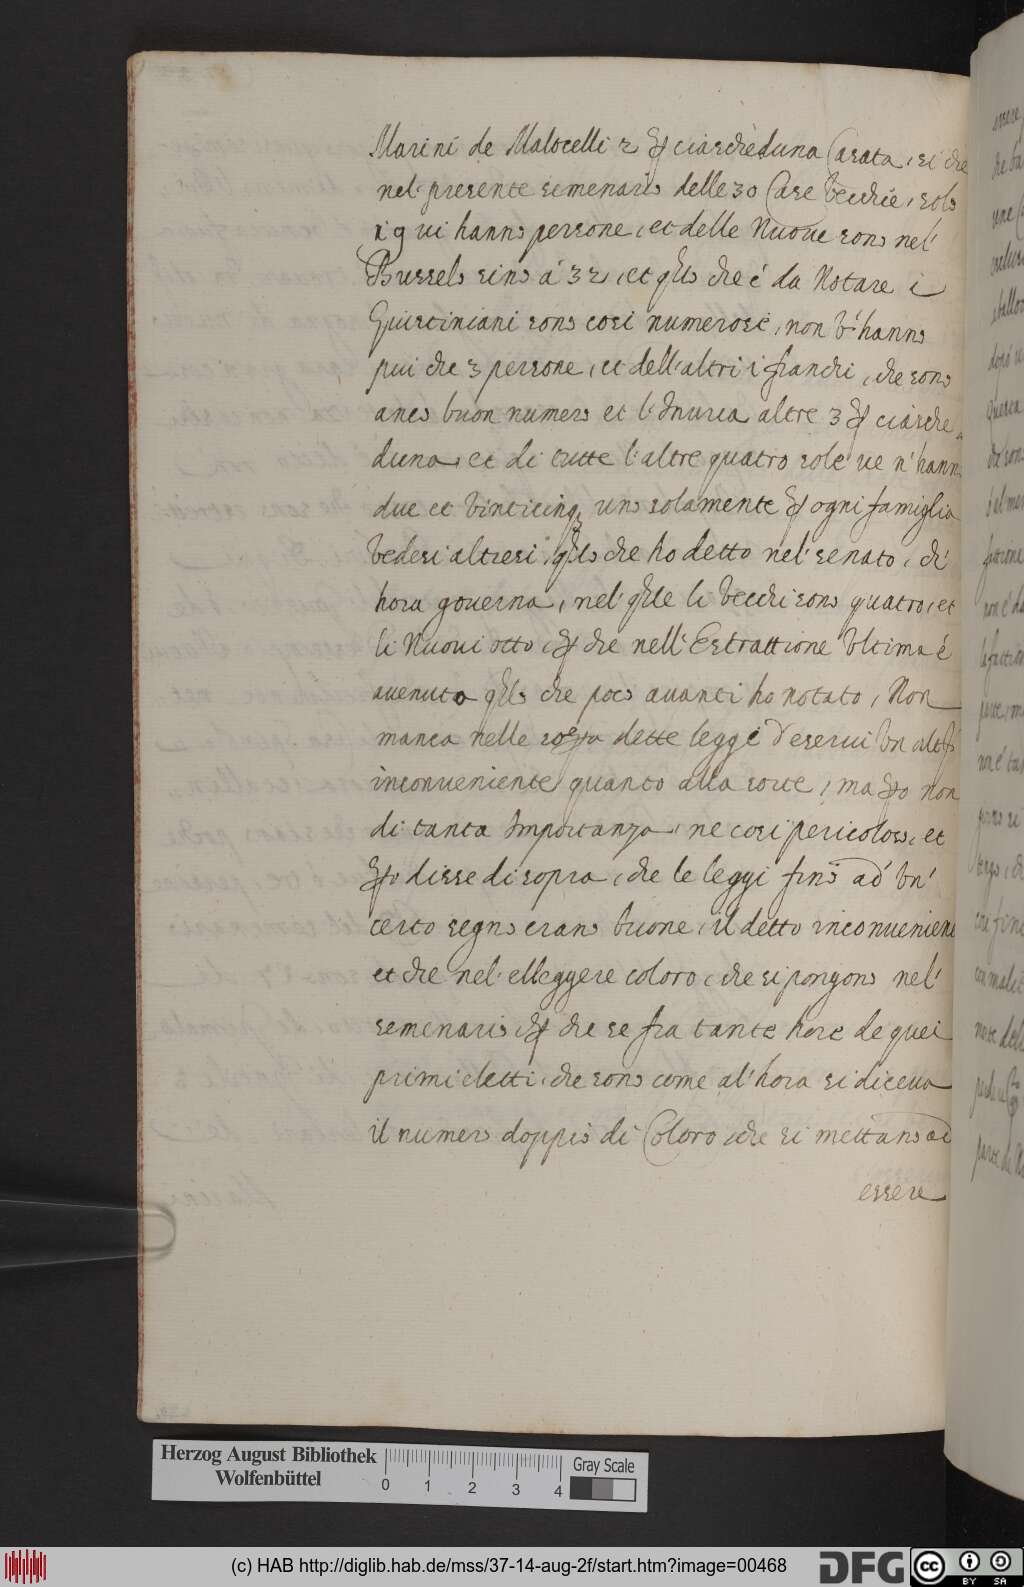 Marini de Malocelli 2 ꝑ ciascheduna Casata, si che
nel presente semenario delle 30 Case Vecchie, solo
19 vi hanno persone, et delle Nuove sono nel'
Bussolo sino á 32, et qllo che é da Notare i
Giustiniani sono cosi numerosi, non v'hanno
piu che 3 persone, et dell'altri i franchi, che sono
anco buon numero et l'Inurea altre 3 ꝑ ciasche
duna, et di tutte l'altre quatro sole ue n'hanno
due et Vinticinq uno solamente ꝑ ogni famiglia
Vedesi altresi qllo che ho detto nel' senato, ch'
hora governa, nel' qlle li Vecchi sono quatro, et
li Nuovi otto, ꝑ che nell' Estrattione Ultima é
avenuto qllo che poco avanti ho notato, Non
manca nelle sopra dette leggi d'esservi Un altro
inconveniente quanto alla sorte, ma ꝑo non
di tanta Importanza, ne cosi pericoloso, et
ꝑo disse di sopra, che le leggi fino ad Un'
certo segno erano buone, il detto inconvenien
et che nel' elleggere coloro, che si pongono nel'
semenario, ꝑ che se fra tante hore de quei
primi eletti, che sono come al'hora si diceva
il numero doppio di Coloro, che si mettano ad
essere
Herzog August Bibliothek
Wolfenbüttel
0 1 2 3 4
Gray Scale
(c) HAB http://diglib.hab.de/mss/37-14-aug-2f/start.htm?image=00468
DFG
cc BY SA